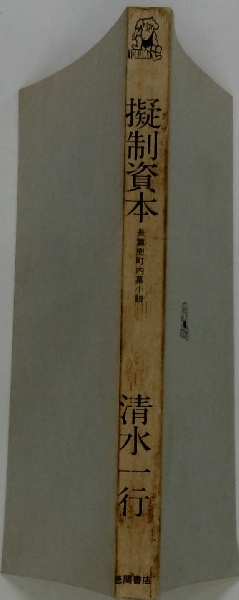 擬制資本
長篇兜町内幕小説
清水一行
徳間書店